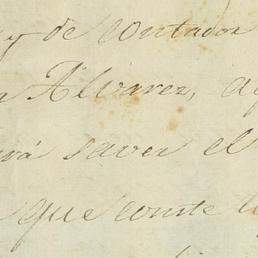 y de contador
Alvarez,
rá saver el
que conste